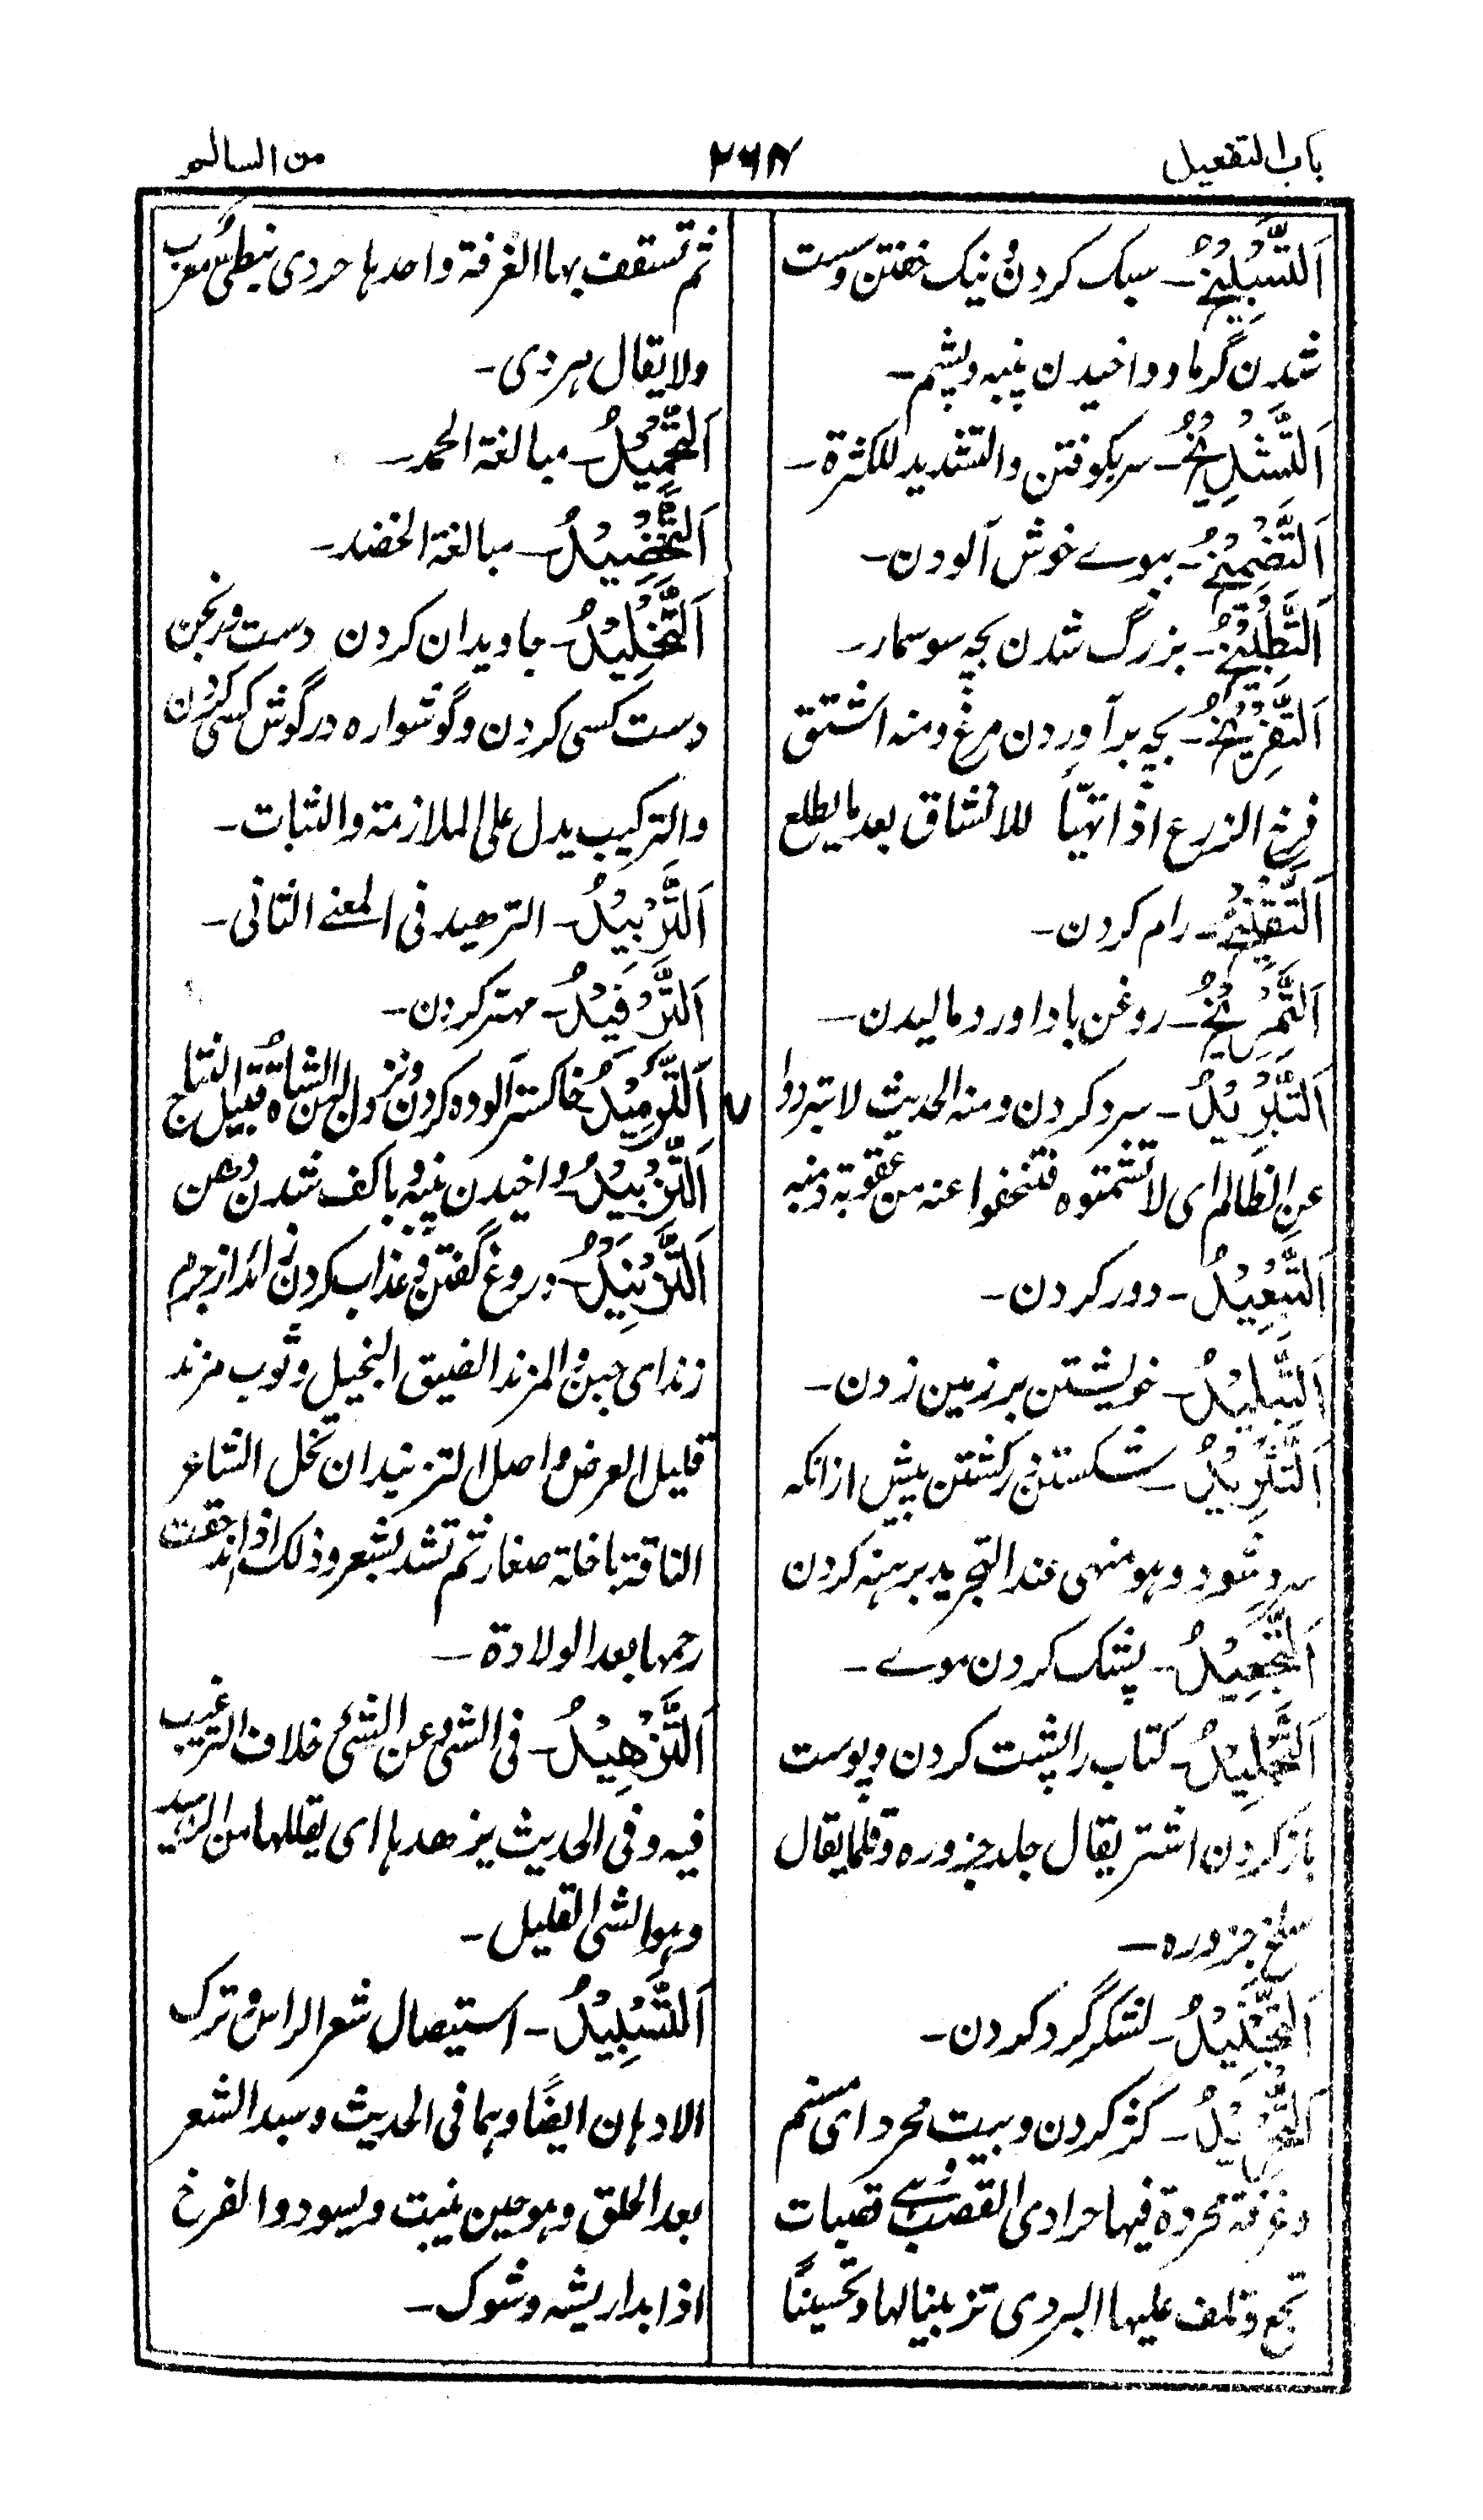 باب التفعیل
۲۶۴
من السالم
اَلتَّسْبِيْخُ۔ سبک کردن و نیک خفتن و سست
شدن گرما و واخیدن پنبه و پشم۔
اَلتَّشْدِيْخُ۔ سر کوفتن والتشدید للکثرة۔
اَلتَّضْمِيْخُ۔ ببوے خوش آلودن۔
اَلتَّطْبِيْخُ۔ بزرگ شدن بچه سوسمار۔
اَلتَّفْرِيْخُ۔ بچه برآوردن مرغ ومنه اشتق
فرخ الزرع اذا تهیّأ للانشقاق بعد ما یطلع
اَلتَّفْنِيْخُ۔ رام کردن۔
اَلتَّمْرِيْخُ۔ روغن با دارو در مالیدن۔
اَلتَّبْرِيْدُ۔ سرد کردن ومنه الحدیث لا تبردوا
عن الظالم ای لا تشتموه فتخففوا عنه من عقوبة ذنبه
اَلتَّبْعِيْدُ۔ دور کردن۔
اَلتَّبْلِيْدُ۔ خویشتن بر زمین زدن۔
اَلتَّثْرِيْدُ۔ شکستن و کشتن پیش ازانکه
سرد شود وهو منهی عنه التجرید برهنه کردن
اَلتَّجْعِيْدُ۔ پشک کردن موے۔
اَلتَّجْلِيْدُ۔ کتاب را پشت کردن و پوست
باز کردن اشتر یقال جلد جزوره وقلما یقال
سلخ جزوره۔
اَلتَّجْنِيْدُ۔ لشکر گرد کردن۔
اَلتَّحْرِيْدُ۔ کژ کردن وبیت محرد ای مسنم
وغرفة محردة فیها حرادی القصب وهی قصبات
تجمع وتلف علیها البردی تزیینا لها وتحسینًا
ثم تسقف بها الغرفة واحدها حردی نبطی معرب
ولا یقال هردی۔
اَلتَّحْمِيْدُ۔ مبالغة الحمد۔
اَلتَّخْضِيْدُ۔ مبالغة الخضد۔
اَلتَّخْلِيْدُ۔ جاویدان کردن دست ورنجن
دست کسی کردن و گوشواره در گوش کسی کردن
والترکیب یدل علی الملازمة والثبات۔
اَلتَّرْبِيْدُ۔ الترهید فی المعنے الثانی۔
اَلتَّرْفِيْدُ۔ مهتر کردن۔
اَلتَّرْمِيْدُ خاکستر آلوده کردن ونزول لبن الشاة قبیل النتاج
اَلتَّزْبِيْدُ واخیدن پنبه و با کف شدن دهن
اَلتَّزْنِيْدُ۔ دروغ گفتن و عذاب کردن زائد از جرم
زند ای جبن والمزند الضیق البخیل وثوب مزند
قلیل العرض واصل التزنید ان تخل الشاعر
الناقة باخلة صغار ثم تشد بشعر وذلک اذا اندحقت
رحمها بعد الولادة۔
اَلتَّزْهِيْدُ۔ فی الشیٔ عن الشیٔ خلاف الترغیب
فیه وفی الحدیث یزهدها ای یقللها من الزهید
وهو الشی القلیل۔
اَلتَّسْبِيْدُ۔ استیصال شعر الراس وترک
الادهان ایضًا وهما فی الحدیث وسبد الشعر
بعد الحلق وهو حین ینبت ویسود والفرخ
اذا بدا ریشه وشوک۔